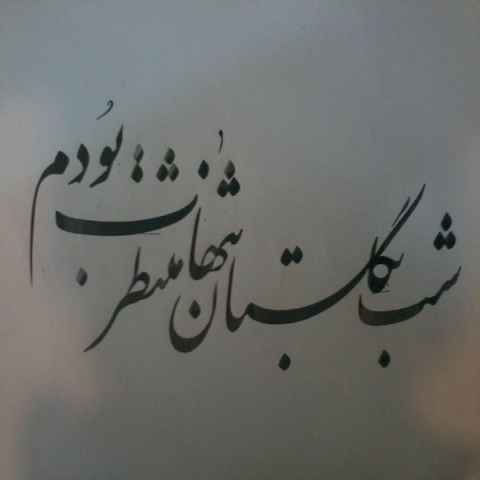 شب به گلستان تنها منتظرت بودم